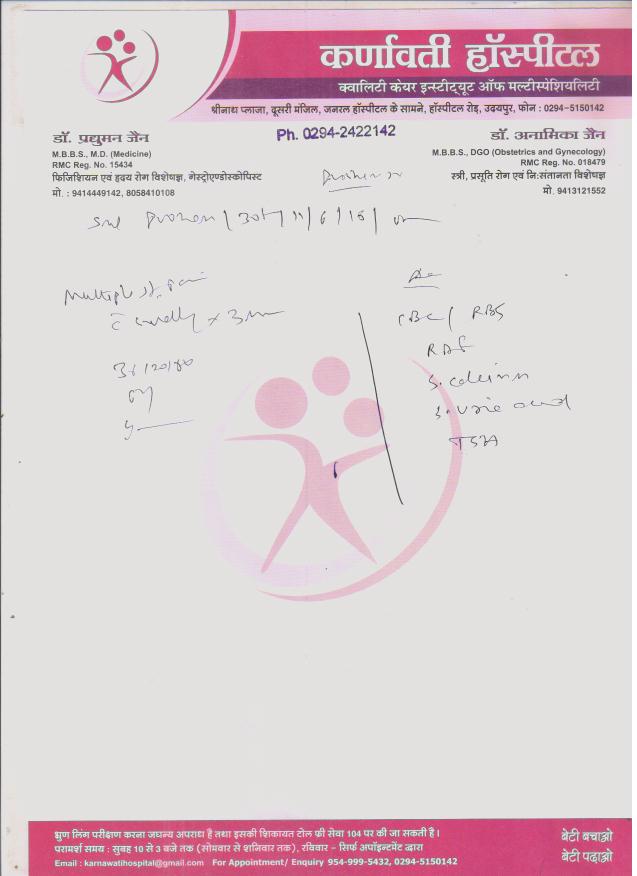 कर्णावती हॉस्पीटल
क्वालिटी केयर इन्स्टीट्यूट ऑफ मल्टीस्पेशियलिटी
श्रीनाथ प्लाजा, दूसरी मंजिल, जनरल हॉस्पीटल के सामने, हॉस्पीटल रोड़, उदयपुर, फोन : 0294-5150142
डॉ. प्रद्युमन जैन
M.B.B.S., M.D. (Medicine)
RMC Reg. No. 15434
फिजिशियन एवं हृदय रोग विशेषज्ञ, गेस्ट्रोएण्डोस्कोपिस्ट
मो. : 9414449142, 8058410108
Ph. 0294-2422142
डॉ. अनासिका जैन
M.B.B.S., DGO (Obstetrics and Gynecology)
RMC Reg. No. 018479
स्त्री, प्रसूति रोग एवं नि:संतानता विशेषज्ञ
मो. 9413121552
11/6/15
Multiple Jt. pain
CBC / RBS
S. calcium
S. uric acid
TSH
भ्रुण लिंग परीक्षण करना जघन्य अपराध है तथा इसकी शिकायत टोल फ्री सेवा 104 पर की जा सकती है।
परामर्श समय : सुबह 10 से 3 बजे तक (सोमवार से शनिवार तक), रविवार - सिर्फ अपॉइन्टमेंट द्वारा
Email : karnawatihospital@gmail.com For Appointment/ Enquiry 954-999-5432, 0294-5150142
बेटी बचाओ
बेटी पढ़ाओ